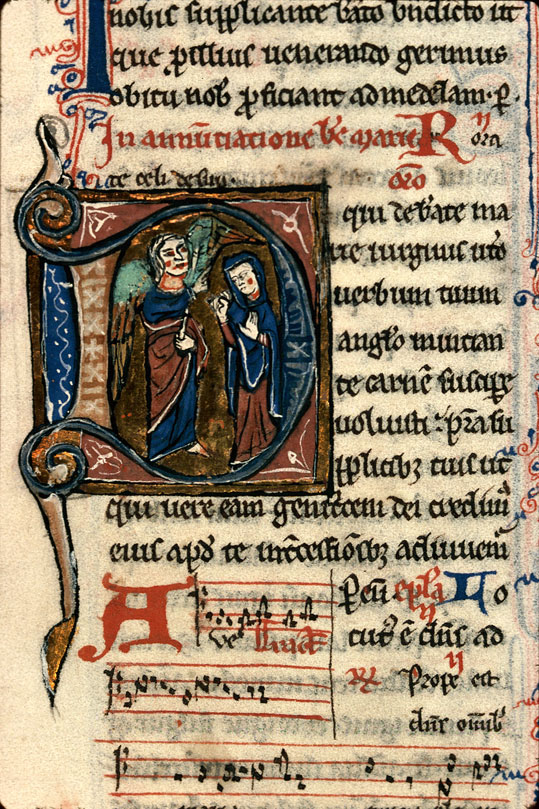 nobis supplicante bato bndicto ut
que p illius ueneranдo gerimus
obitu nob proficiant ad medelam. p.
In annutiatione be marie R ora
te celi desup. oro
D qui de bate ma
rie uirginis uto
uerbum tuum
anglo nuncian
te carne suscipe
uoluisti : pra su
pplicibz tuis ut
qui uere eam genitcem dei credim
eius apd te intcessiobz adiuuem
A Pcu epla Lo
ve cut e dns ad
Prope est
dns omibz